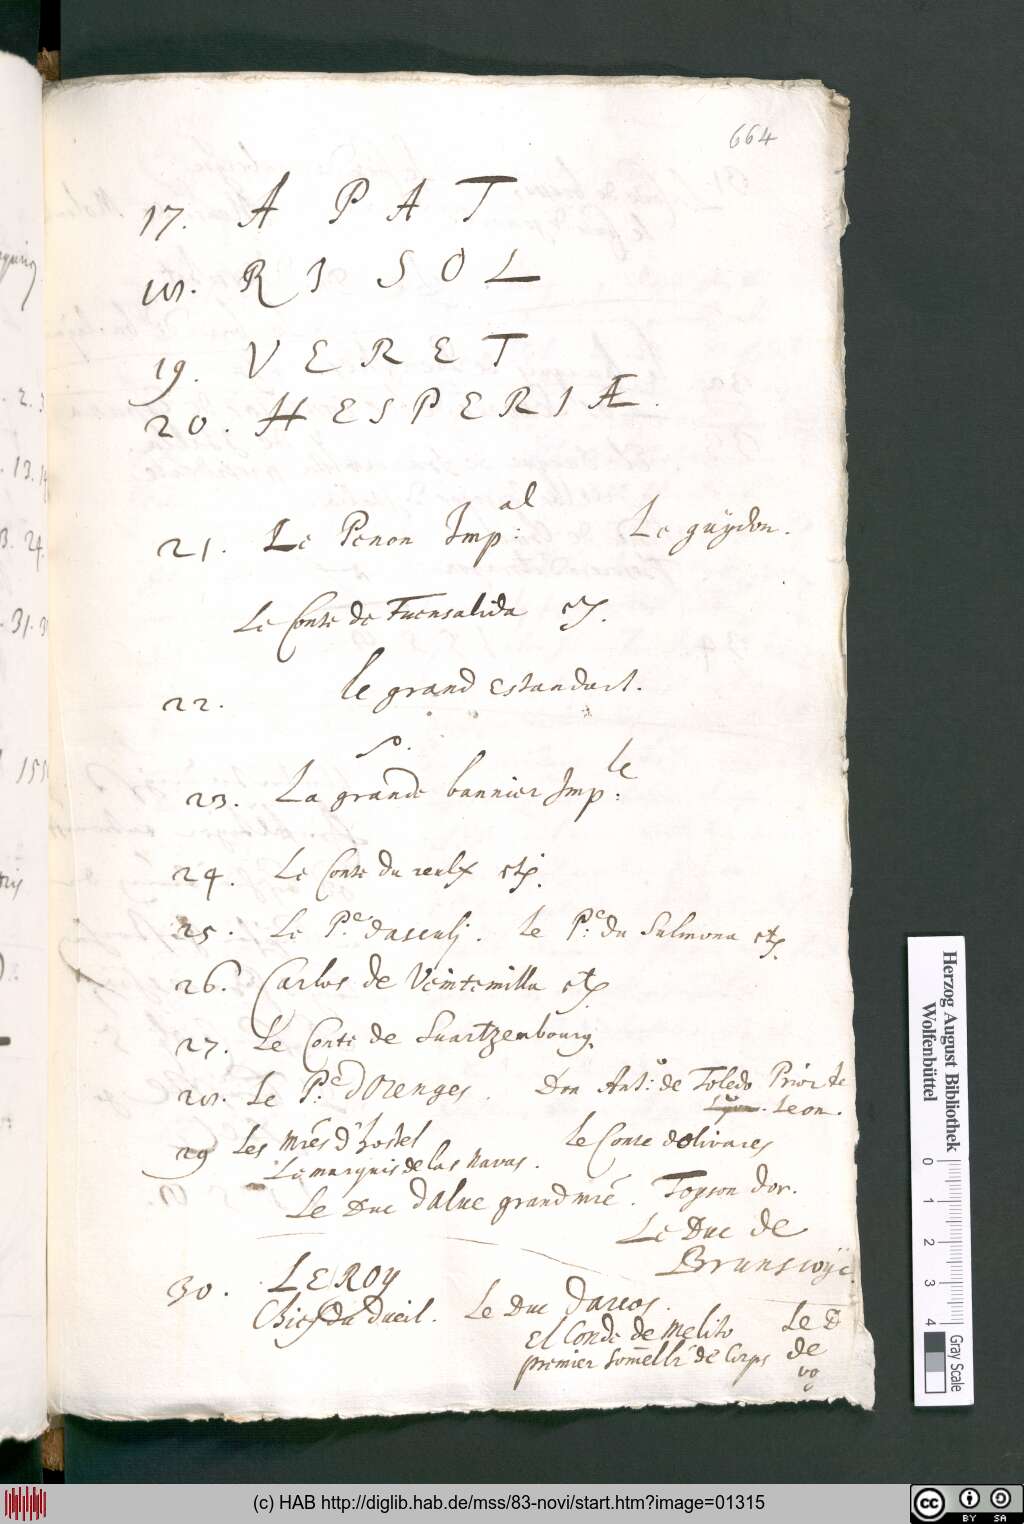 664
17. A P A T
18. R I S O L
19. V E R E T
20. H E S P E R I Æ.
21. Le Penon Imp:al Le guÿdon.
Le Conte de Fuensalida etc.
22. le grand estandart.
23. La grande bannier Imp:le
24. Le Conte du reulx etc.
25. Le P:e dasculj. Le P:e du Sulmona etc.
26. Carlos de Veintemilla etc
27. Le Conte de Suartzenbourg
28. Le P:e dOrenges. Don Ant:o de Toledo Prior de
Leon.
29 Les mres d'hostel Le Conte dolivares
Le marquis de las Navas.
Le Duc dalue grand mre. Toyson dor.
Le Duc de
Brunswÿc.
30. LE ROY
Chief du dueil. Le Duc darcos. Le D
El Conde de Melito de
premier somellr de Corps vo
2.
13.
24.
31.
155
Herzog August Bibliothek
Wolfenbüttel
0 1 2 3 4
Gray Scale
(c) HAB http://diglib.hab.de/mss/83-novi/start.htm?image=01315
cc BY SA